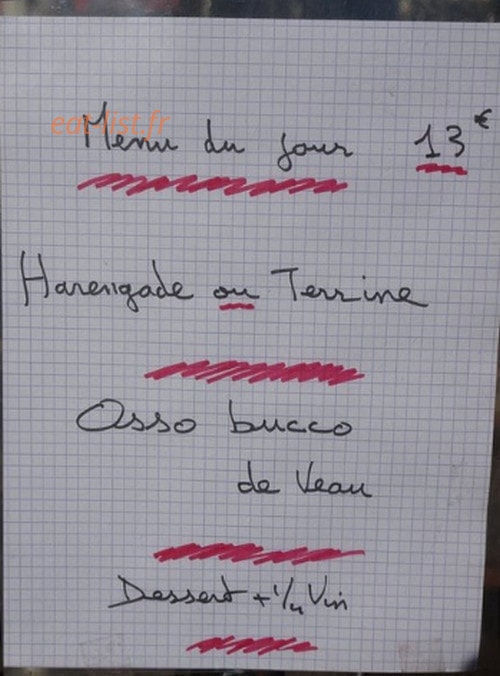 eat-list.fr
Menu du jour 13€
Harengade ou Terrine
Osso bucco
de Veau
Dessert + 1/4 Vin